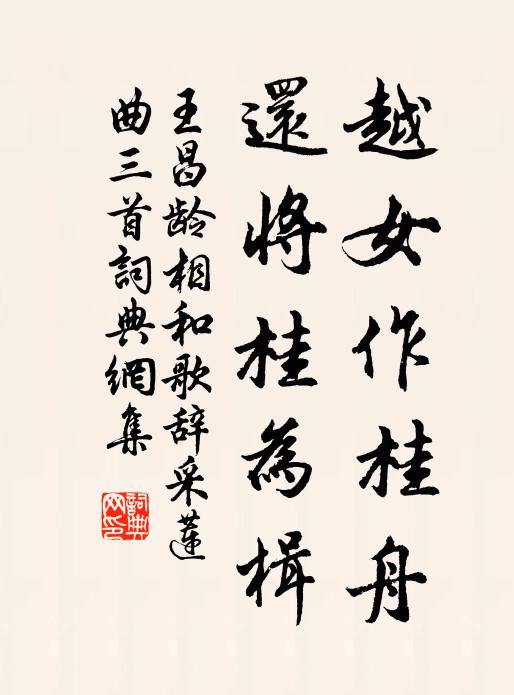 越女作桂舟
還將桂為楫
王昌龄相和歌辞采蓮
曲三首詞典網集
詞典
网印